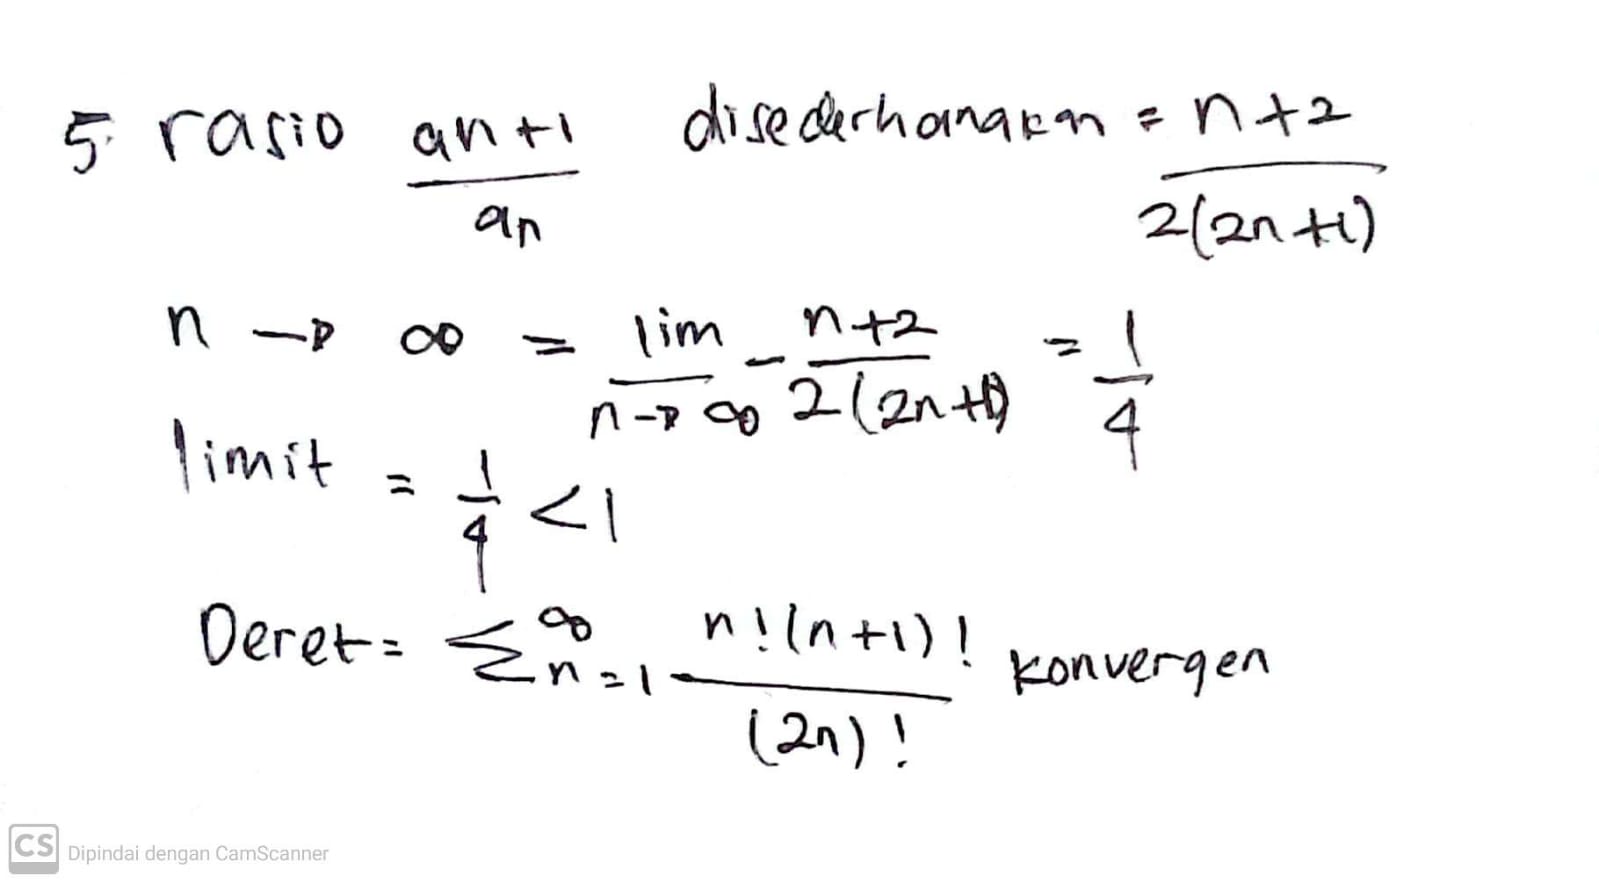 5. rasio an+1/an disederhanakan = n+2/2(2n+1)
n → ∞ = lim n→∞ - n+2/2(2n+1) = 1/4
limit = 1/4 < 1
Deret = ∑∞n=1 n!(n+1)!/(2n)! konvergen
CS Dipindai dengan CamScanner